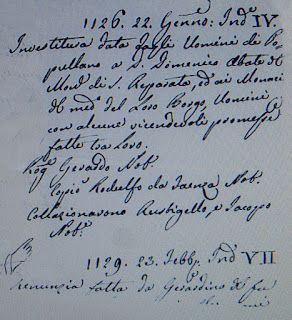 1126. 22. Genno: Ind. IV.
Investitura data dagli Uomini di Po-
prellano a D. Domenico Abate del
Mon: di S. Reparata, ed ai Monaci
del med: del Loro Borgo, Uomini,
con alcune vicendevoli promesse
fatte tra Loro.
Rog: Gerardo Not.
Copia Rodulfo da Faenza Not.
Collazionarono Rustigello, e Jacopo
Not:
1129. 23. Febb: Ind VII
Renunzia fatta da Gerardino del fu